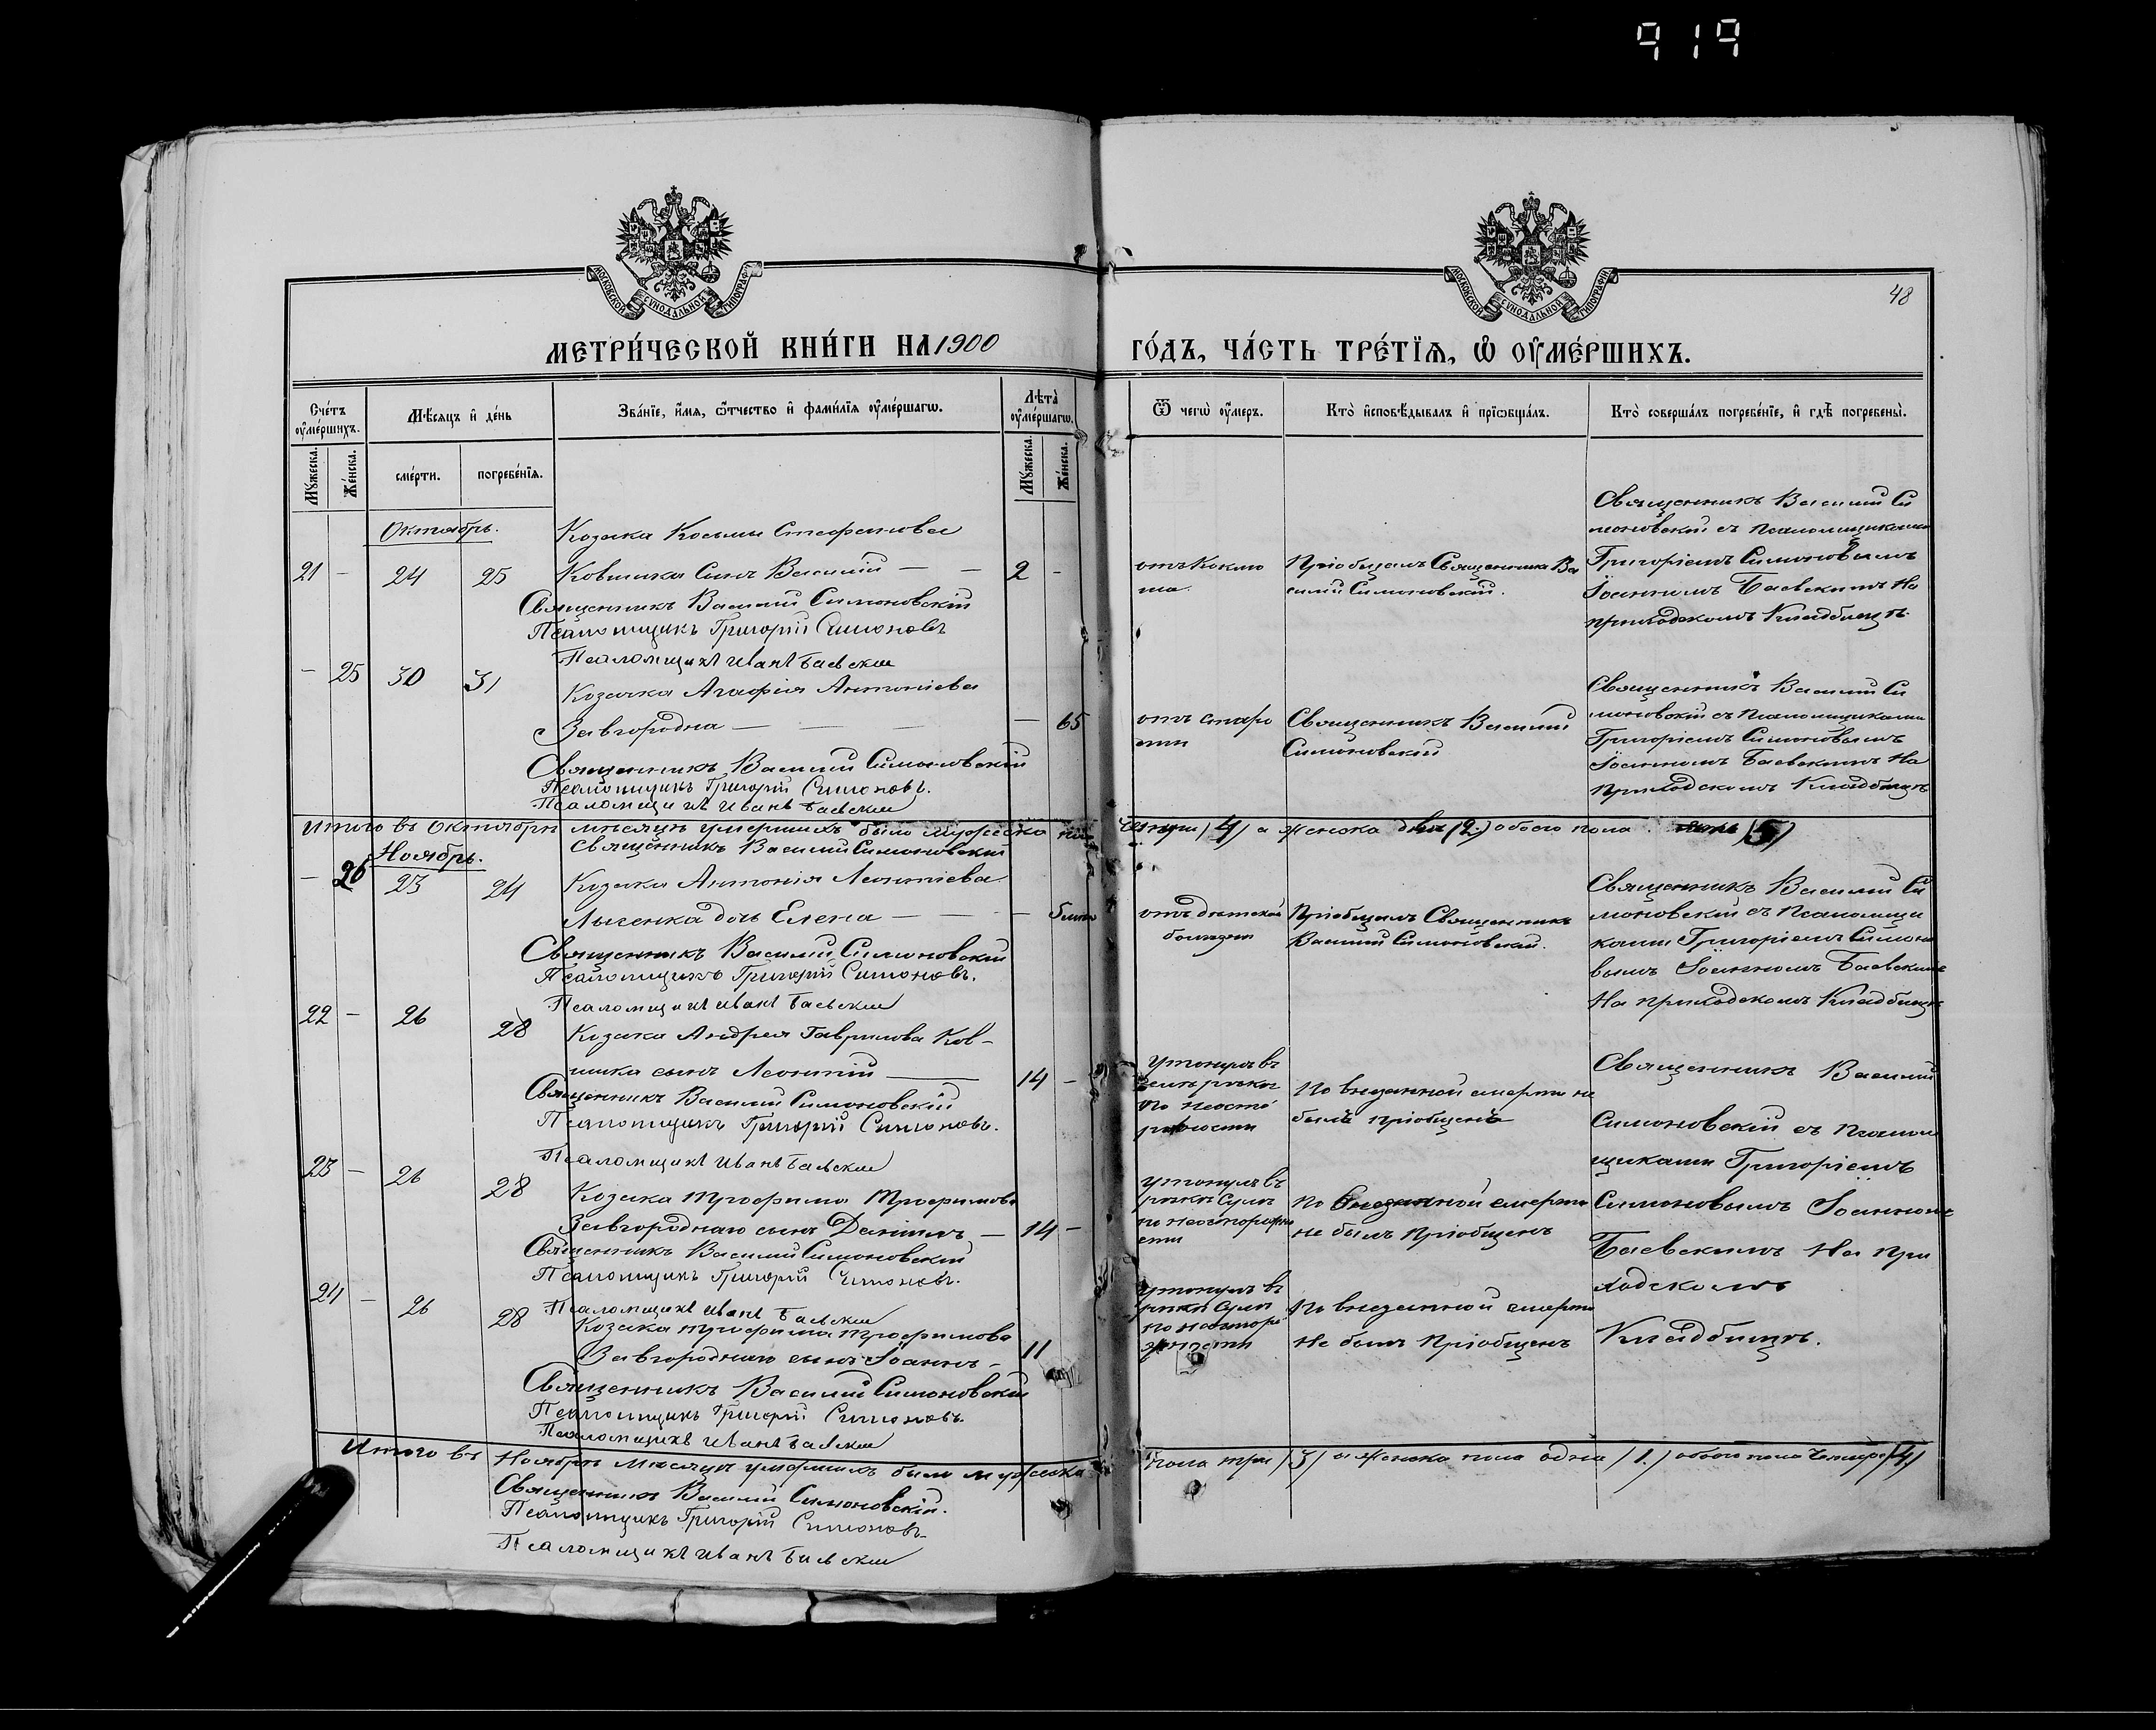 919
МОСКОВСКОЙ СУНОДАЛЬНОЙ ТИПОГРАФІИ
МОСКОВСКОЙ СУНОДАЛЬНОЙ ТИПОГРАФІИ
48
МЕТРИ́ЧЕСКОЙ КНИ́ГИ НА 1900
ГО́ДЪ, ЧА́СТЬ ТРЕ́ТЇѦ, Ѡ҆ ОУ҆МЕ́РШИХЪ.
Сче́тъ оу҆ме́ршихъ.
Мꙋжеска.
Же́нска.
Мѣ́сяцъ и҆ де́нь
сме́рти.
погребе́нїѧ.
Зва́нїе, и҆́мѧ, ѻ҆́тчество и҆ фами́лїѧ оу҆ме́ршагѡ.
Лѣ́та оу҆ме́ршагѡ.
Мꙋ́жеска.
Же́нска.
Ѿ чегѡ̀ оу҆́меръ.
Кто̀ и҆сповѣ́дывалъ и҆ прїѡбща́лъ.
Кто̀ соверша́лъ погребе́нїе, и҆ гдѣ̀ погребены̀.
Октябрь.
21 - 24 25
Козака Косьмы Стефанова
Ковшика Сынъ Василій — — 2 -
Священникъ Василій Симоновскій
Псаломщикъ Григорій Симоновъ
Псаломщикъ Иванъ Баевскій
отъ Коклю
ша.
Пріобщалъ Священникъ Ва
силій Симоновскій.
Священникъ Василій Си
моновскій съ псаломщиками
Григоріемъ Симоновымъ
Іоанномъ Баевскимъ На
приходскомъ Кладбищѣ.
- 25 30 31
Козачка Агафія Антоніева
Завгородна — — — — 65
Священникъ Василій Симоновскій
Псаломщикъ Григорій Симоновъ.
Псаломщикъ Иванъ Баевскій
отъ старо
сти
Священникъ Василій
Симоновскій
Священникъ Василій Си
моновскій съ Псаломщиками
Григоріемъ Симоновымъ
Іоанномъ Баевскимъ На
Приходскомъ Кладбищѣ
Итого въ Октябрѣ мѣсяцѣ умершихъ было мужеска
четыри /4/ а женска два /2./ обоего пола /5/
Священникъ Василій Симоновскій
Ноябрь.
- 26 23 24
Козака Антонія Леонтіева
Лысенка дочь Елена — — —
Священникъ Василій Симоновскій
Псаломщикъ Григорій Симоновъ.
Псаломщикъ Иванъ Баевскій
отъ дѣтской
болѣзни
Пріобщалъ Священникъ
Василій Симоновскій.
Священникъ Василій Си
моновскій съ Псаломщи
ками Григоріемъ Симоно
вымъ Іоанномъ Баевскимъ
На приходскомъ Кладбищѣ
22 - 26 28
Козака Андрея Гаврилова Ков-
шика сынъ Леонтій — 14 -
Священникъ Василій Симоновскій
Псаломщикъ Григорій Симоновъ.
Псаломщикъ Иванъ Баевскій
утонулъ въ
рѣкѣ
по неосто
рожности
По внезапной смерти не
былъ пріобщенъ
Священникъ Василій
Симоновскій съ псалом
щиками Григоріемъ
Симоновымъ Іоанномъ
Баевскимъ На при
ходскомъ
Кладбищѣ.
23 - 26 28
Козака Трофима Трофимова
Завгороднаго сынъ Даніилъ — 14 -
Священникъ Василій Симоновскій
Псаломщикъ Григорій Симоновъ.
Псаломщикъ Иванъ Баевскій
утонулъ въ
рѣкѣ Сулѣ
по неосторожно
сти
По внезапной смерти
не былъ Пріобщенъ
24 - 26 28
Козака Трофима Трофимова
Завгороднаго сынъ Іоаннъ - 11
Священникъ Василій Симоновскій
Псаломщикъ Григорій Симоновъ.
Псаломщикъ Иванъ Баевскій
утонулъ въ
рѣкѣ Сулѣ
по неосторо
жности
По внезапной смерти
Не былъ Пріобщенъ
Итого въ Ноябрѣ Мѣсяцѣ умершихъ было мужеска
Пола три /3/ а Женска пола одна /1./ обоего пола Четыре /4/
Священникъ Василій Симоновскій.
Псаломщикъ Григорій Симоновъ.
Псаломщикъ Иванъ Баевскій